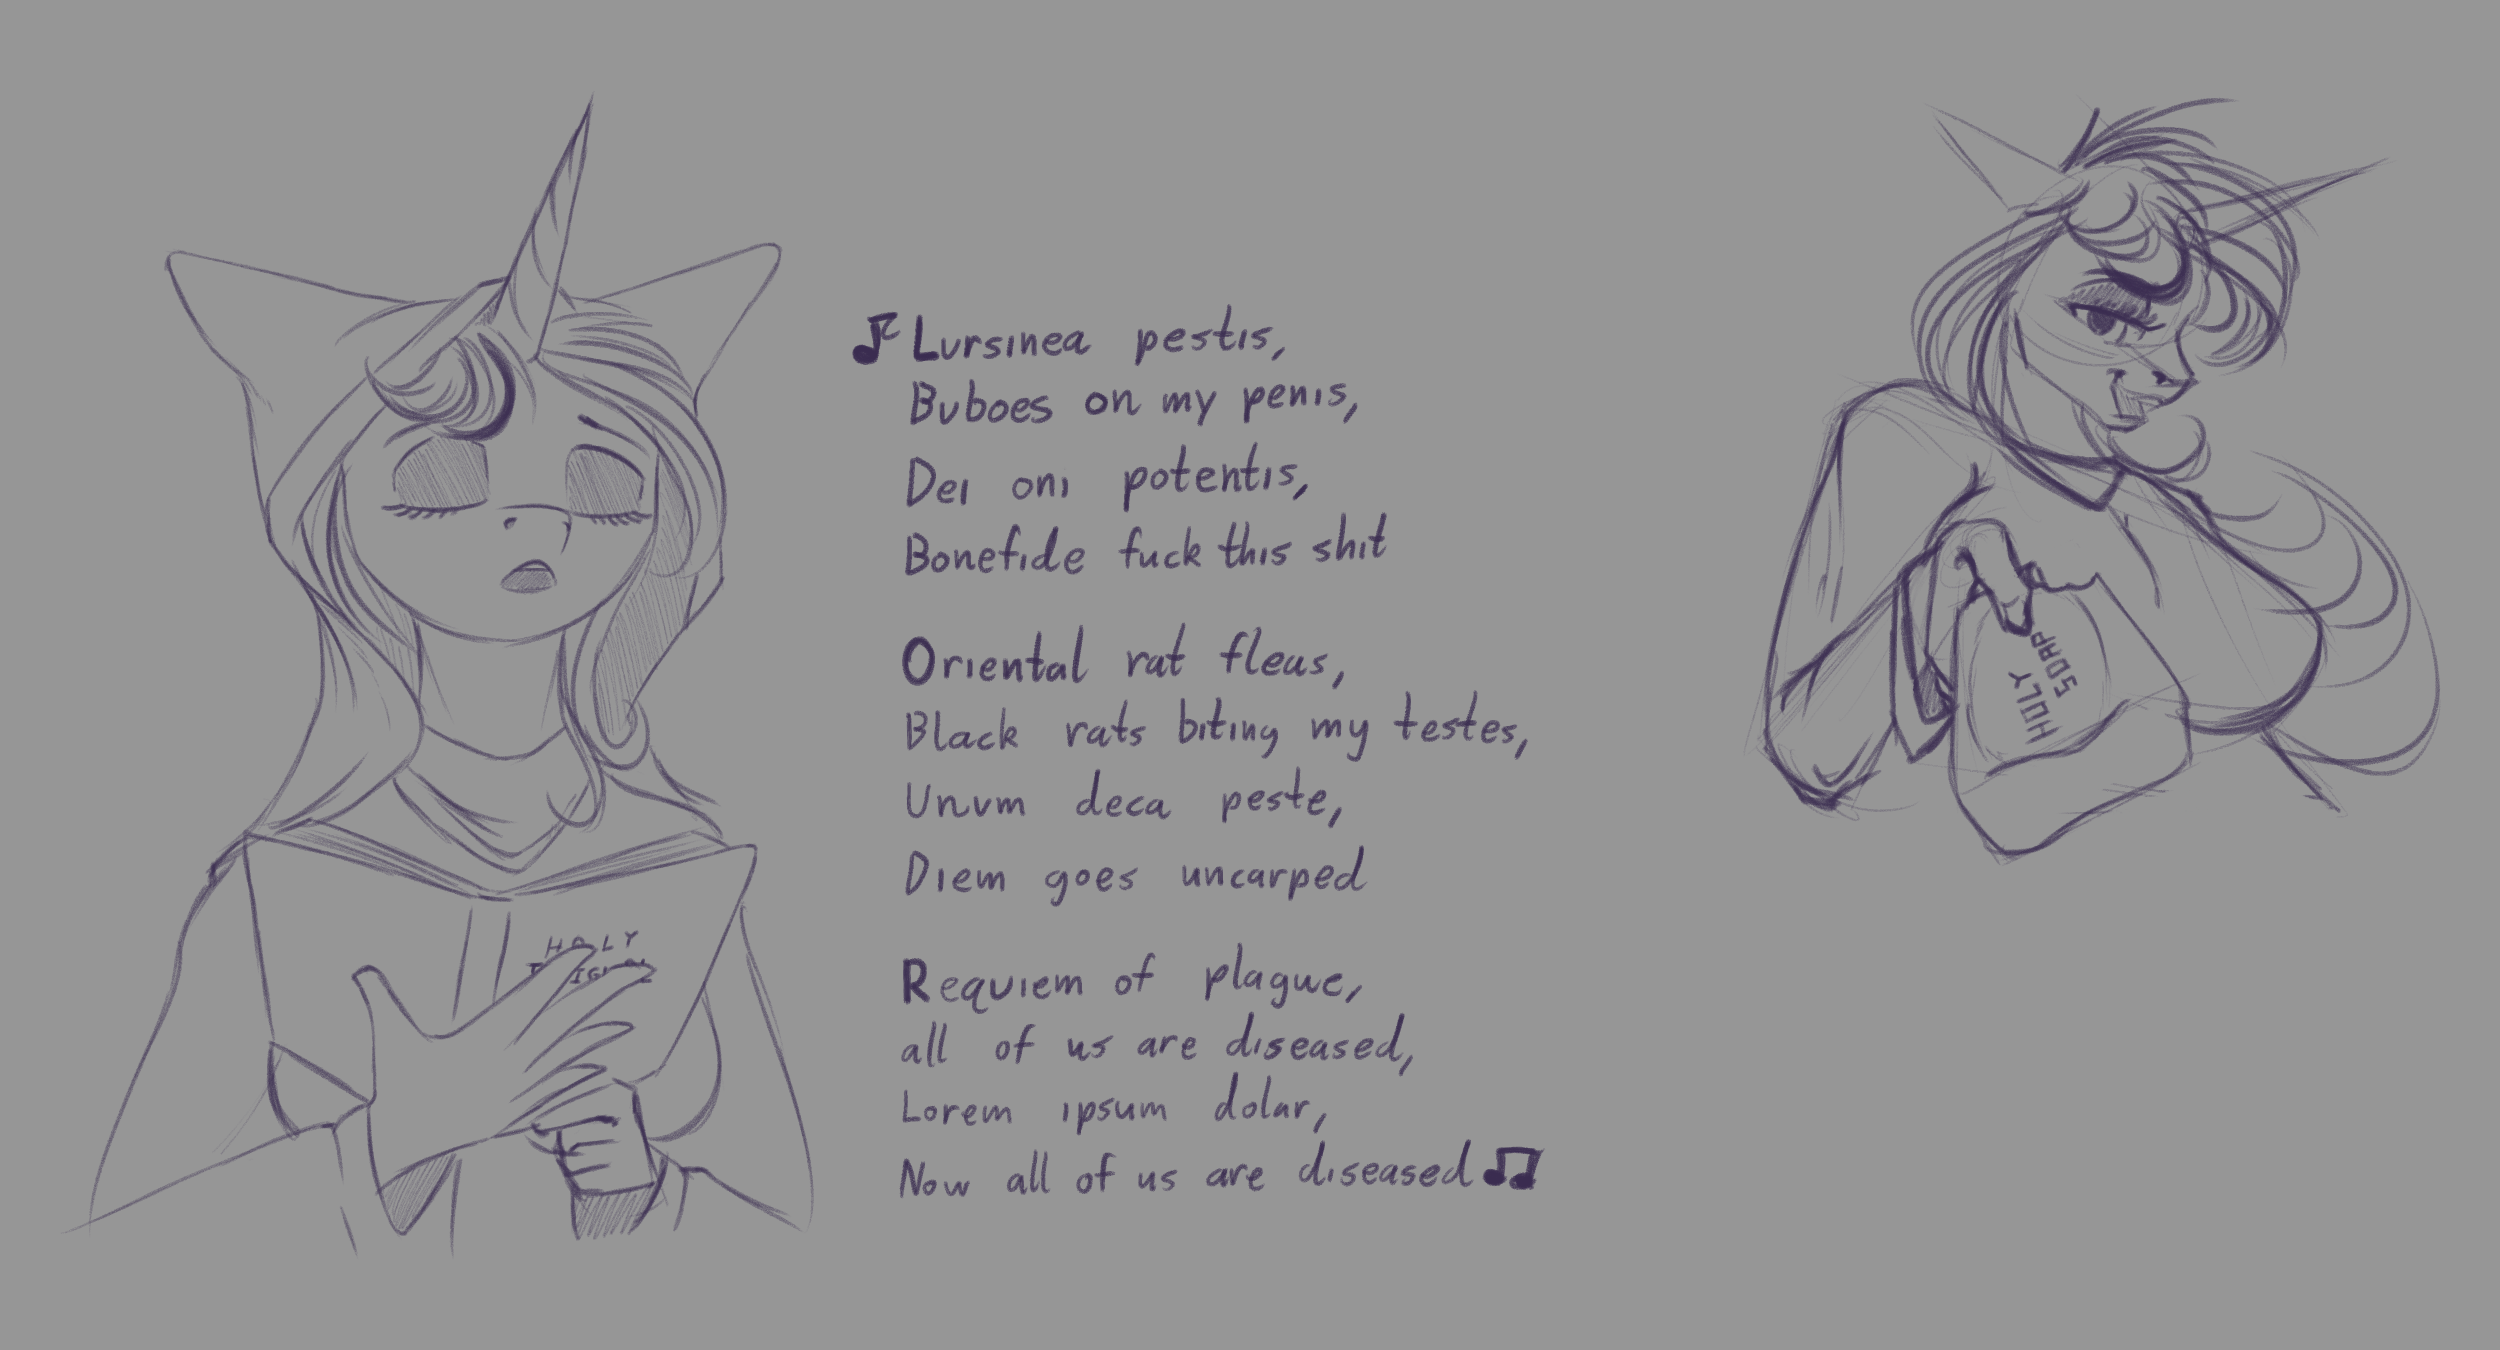 HOLY
Lursinea pestis,
Buboes on my penis,
Dei oni potentis,
Bonefide fuck this shit
Oriental rat fleas,
Black rats biting my testes,
Unum deca peste,
Diem goes uncarped
Requiem of plague,
all of us are diseased,
Lorem ipsum dolar,
Now all of us are diseased
HOLY
SOAP